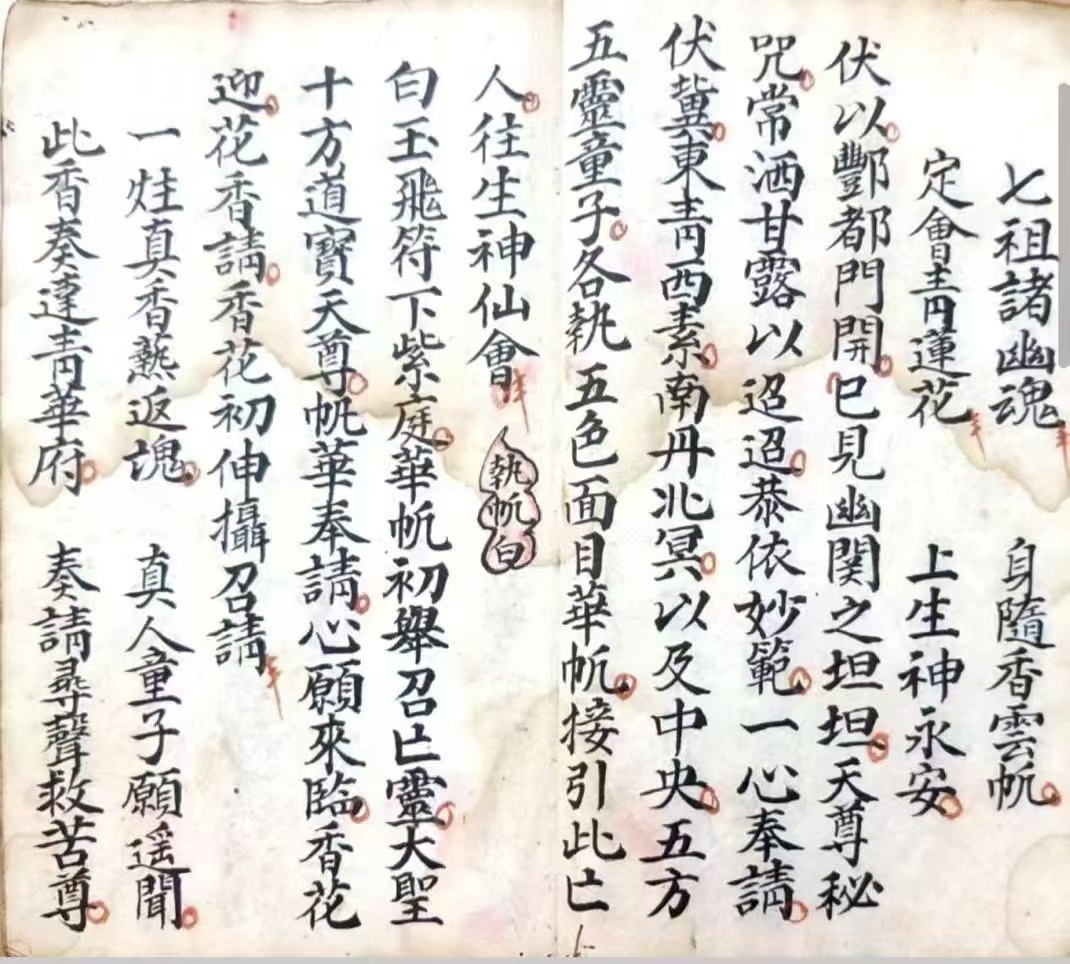 七祖諸幽魂 身隨香雲帆
定會青蓮花 上生神永安
伏以酆都門開已見幽関之坦坦天尊秘
咒常洒甘露以迢迢恭依妙範一心奉請
伏冀東青西素南丹北冥以及中央五方
五靈童子各執五色面目華帆接引此亡
人往生神仙會 執帆白
白玉飛符下紫庭華帆初舉召亡靈大聖
十方道寶天尊帆華奉請心願來臨香花
迎花香請香花初伸攝召請
一炷真香爇返塊 真人童子願遥聞
此香奏達青華府 奏請尋聲救苦尊